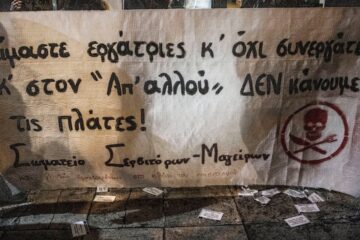 είμαστε εργάτριες κ' όχι συνεργάτ
κ' στον "Απ'αλλού" ΔΕΝ κάνουμε
τις πλάτες!
Σωματείο Σερβιτόρων-Μαγείρων